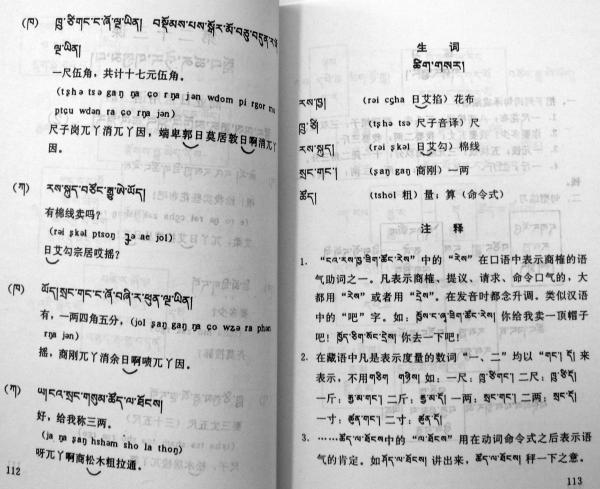 (ཁ) ཁྲུ་ཙིགང་ང་ཞོ་ལྔ་ཡིན། བསྡོམས་པས་སྒོར་མོ་བཅུ་བདུན་ར
ལྔ་ཡིན།
一尺伍角，共计十七元伍角。
(tʂhə tsə gaŋ ŋa ço rŋa jən wdom pi rgor mu
ptçu wdən ra ço rŋa jən)
尺子岗兀丫消兀丫因，端卑郭日莫居敦日啊消兀丫
因。
(ཀ) རས་སྐུད་བཙོང་རྒྱུ་ཨེ་ཡོད།
有棉线卖吗？
(rəi ʂkəl ptsoŋ ae jol)
日艾勾宗居哎摇？
(ཁ) ཡོད། སྲང་གང་ང་ཞོ་བཞི་ར་ཕུན་ལྔ་ཡིན།
有，一两四角五分，(jol ʂaŋ gaŋ ŋa ço wzə ra phən
rŋa jən)
摇，商刚兀丫消余日啊喷兀丫因。
(ཀ) ཡ། ངའ་སྲང་གསུམ་ཚོད་ལ་ཐོངས།
好，给我称三两。
(ja ŋa ʂaŋ hshəm sho la thoŋ)
呀兀丫啊商松木粗拉通。
112
生 词
ཚིག་གསར།
རས་ཁྲ། (rəi cgha 日艾掐) 花布
ཁྲུ་ཙི། (tʂhə tsə 尺子音译) 尺
རས་སྐུད། (rəi ʂkəl 日艾勾) 棉线
སྲང་གང་། (ʂaŋ gaŋ 商刚) 一两
ཚོད། (tshol 粗) 量；算（命令式）
注 释
1. 中的 “རེས” 在口语中表示商榷的语
气助词之一。凡表示商榷、提议、请求、命令口气的，大
都用 “རེས” 或者用 “དྲེས”。在发音时都念升调。类似汉语
中的“吧”字。如： 你给我卖一顶帽子
吧！ཁྱོད་ཙིག་སོང་དྲེས། 你去一下吧！
2. 在藏语中凡是表示度量的数词“一、二”均以“གང་། དོ།
表示，不用གཅིག གཉིས། 如：一尺：ཁྲུ་ཙིགང་། 二尺：ཁྲུ་ཙིདོ།
一斤：རྒྱ་མ་གང་། 二斤：རྒྱ་མ་དོ། 一两：སྲང་གང་། 二两：སྲང་དོ།
一寸：ཚུན་གང་། 二寸：ཚུན་དོ།
3. ……ཚོད་ལ་ཐོངས中的 “ལ་ཐོངས” 用在动词命令式之后表示语
气的肯定。如ཤོད་ལ་ཐོངས། 讲出来，ཚོད་ལ་ཐོངས། 秤一下之意。
113